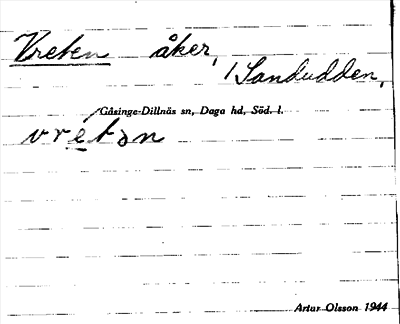 Vreten åker,
/Sandudden,
Gåsinge-Dillnäs sn, Daga hd, Söd. l.
vrétən
Artur Olsson 1944